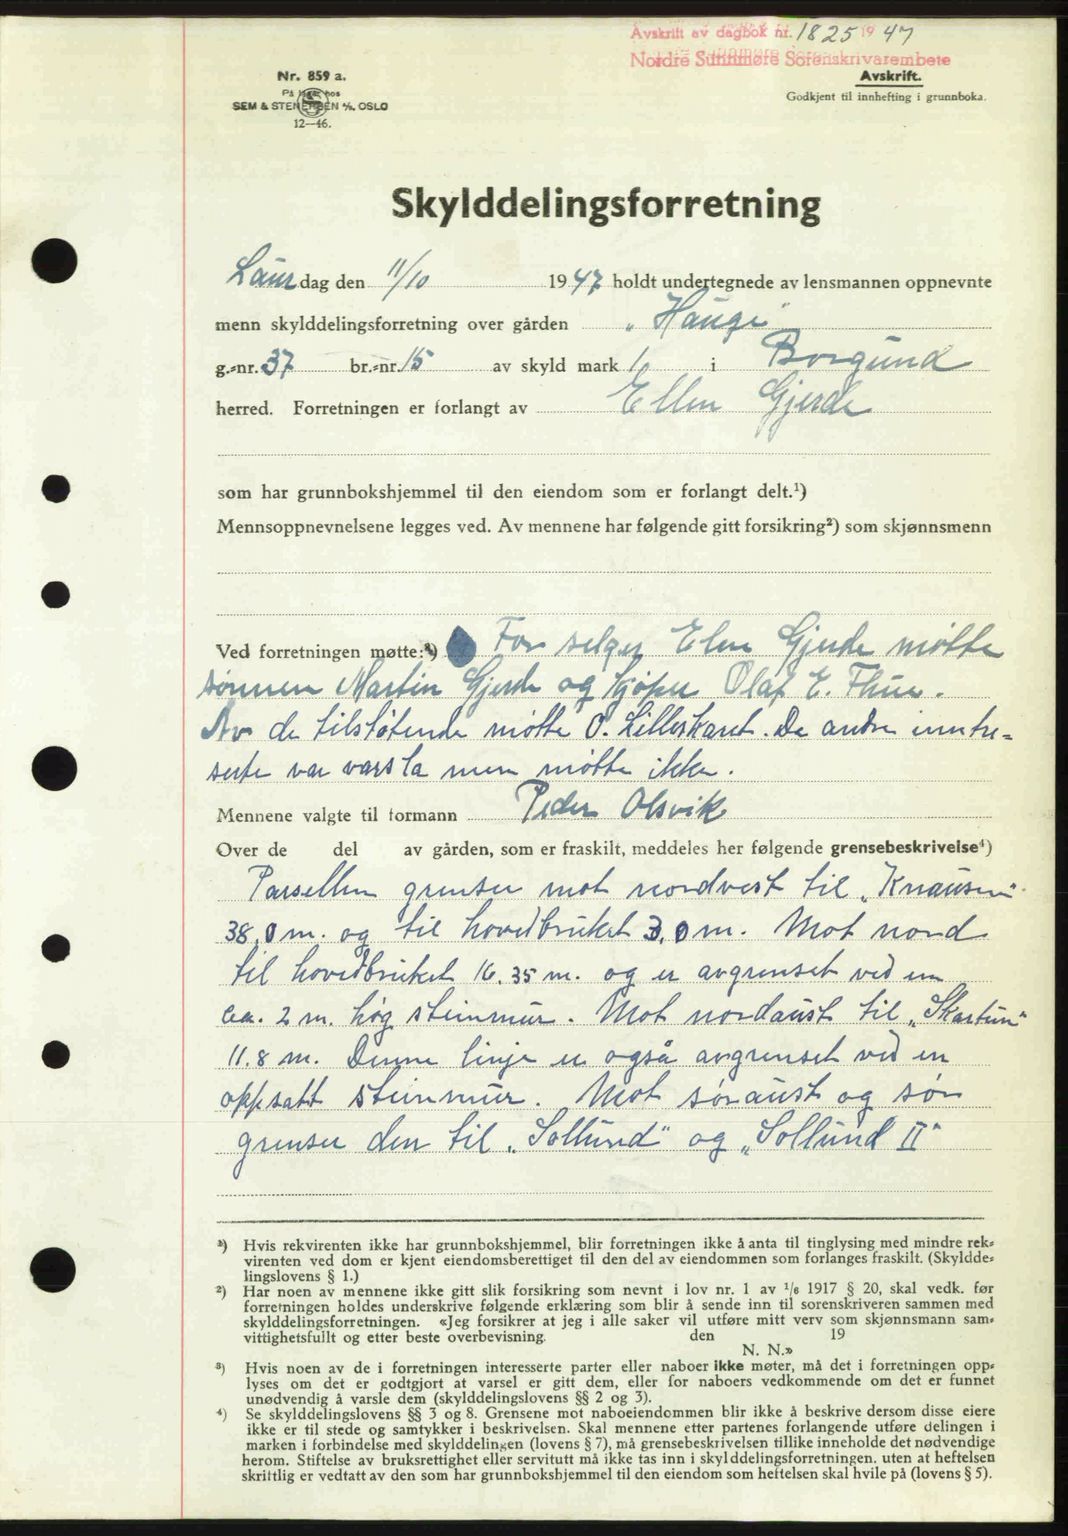 Avskrift av dagbok nr. 1825 1947
Nordre Sunnmøre Sorenskrivarembete
Nr. 859 a.
På lager hos
SEM & STENERSEN A/S. OSLO
12—46.
Avskrift.
Godkjent til innhefting i grunnboka.
Skylddelingsforretning
Laur dag den 11/10 1947 holdt undertegnede av lensmannen oppnevnte
menn skylddelingsforretning over gården „Hauge"
g.-nr. 37 br.-nr. 15 av skyld mark i Borgund
herred. Forretningen er forlangt av Ellen Gjerde
som har grunnbokshjemmel til den eiendom som er forlangt delt.¹)
Mennsoppnevnelsene legges ved. Av mennene har følgende gitt forsikring²) som skjønnsmenn
Ved forretningen møtte:³) For selger Elen Gjerde møtte
sønnen Martin Gjerde og kjøper Olaf E. Thue.
Av de tilstøtende møtte O. Lilleskaret. De andre inntre-
serte var varsla men møtte ikke.
Mennene valgte til formann Peder Olsvik
Over de del av gården, som er fraskilt, meddeles her følgende grensebeskrivelse⁴)
Parsellen grenser mot nordvest til „Knausen"
38,0 m. og til hovedbruket 3,0 m. Mot nord
til hovedbruket 16.35 m. og er avgrenset ved en
ca. 2 m. høg steinmur. Mot nordaust til „Skartun"
11.8 m. Denne linje er også avgrenset ved en
oppsatt steinmur. Mot søraust og sør
grenser den til „Sollund" og „Sollund II"
¹) Hvis rekvirenten ikke har grunnbokshjemmel, blir forretningen ikke å anta til tinglysing med mindre rek-
virenten ved dom er kjent eiendomsberettiget til den del av eiendommen som forlanges fraskilt. (Skyldde-
lingslovens § 1.)
²) Har noen av mennene ikke gitt slik forsikring som nevnt i lov nr. 1 av 1/6 1917 § 20, skal vedk. før
forretningen holdes underskrive følgende erklæring som blir å sende inn til sorenskriveren sammen med
skylddelingsforretningen. «Jeg forsikrer at jeg i alle saker vil utføre mitt verv som skjønnsmann sam-
vittighetsfullt og etter beste overbevisning. den 19
N. N.»
³) Hvis noen av de i forretningen interesserte parter eller naboer ikke møter, må det i forretningen opp-
lyses om det er godtgjort at varsel er gitt dem, eller for naboers vedkommende om det er funnet
unødvendig å varsle dem (skylddelingslovens §§ 2 og 3).
⁴) Se skylddelingslovens §§ 3 og 8. Grensene mot naboeiendommen blir ikke å beskrive dersom disse eiere
ikke er til stede og samtykker i beskrivelsen. Skal mennene etter partenes forlangende utføre delingen i
marken i forbindelse med skylddelingen (lovens § 7), må grensebeskrivelsen tillike inneholde det nødvendige
herom. Stiftelse av bruksrettighet eller servitutt må ikke tas inn i skylddelingsforretningen. uten at heftelsen
skriftlig er vedtatt av den som har grunnbokshjemmel til den eiendom som heftelsen skal hvile på (lovens § 5).